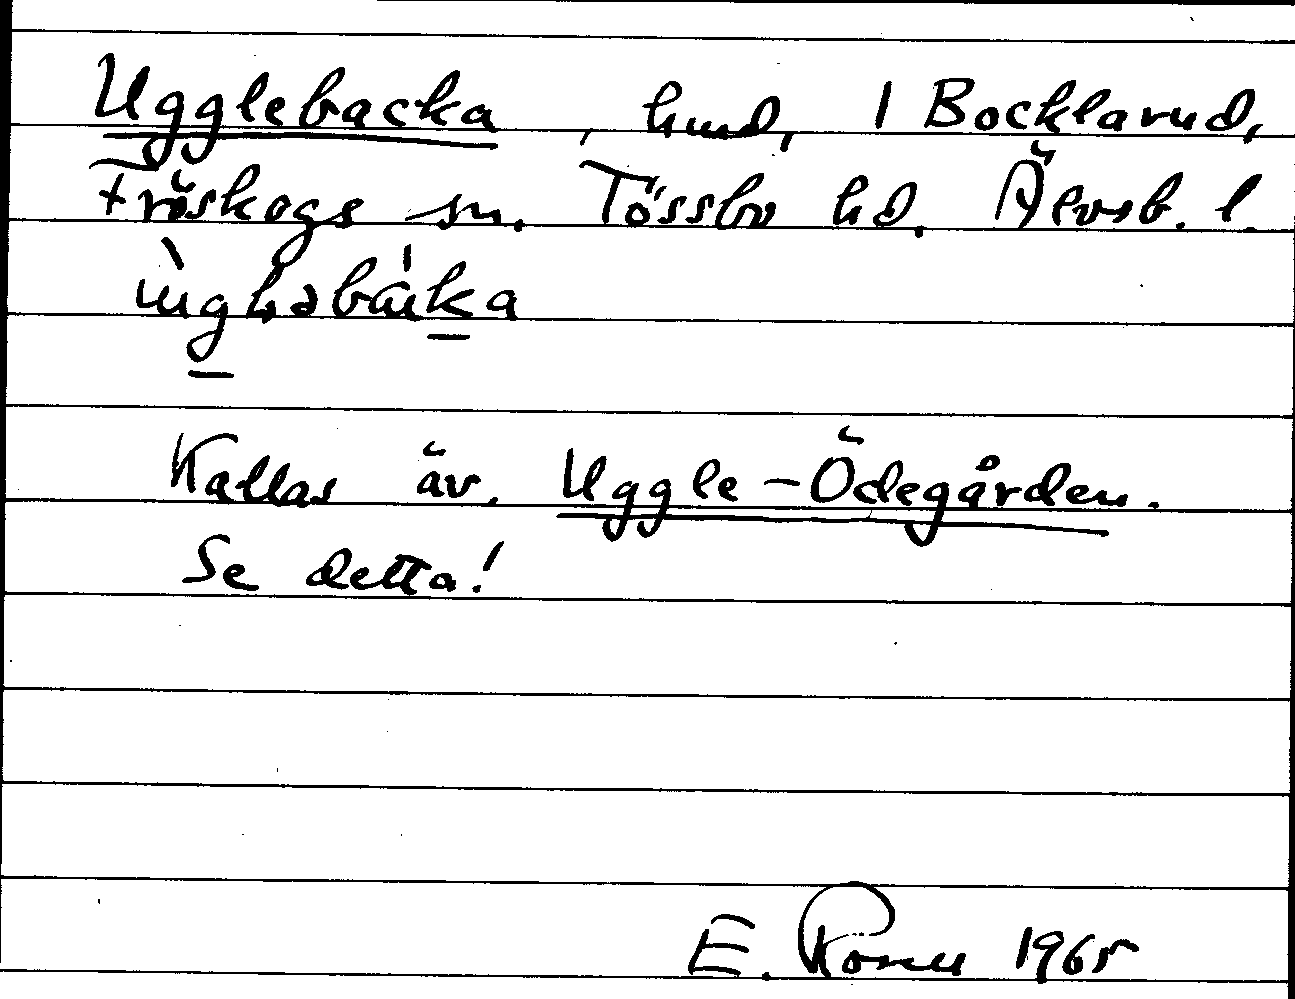 Ugglebacka, hmd, 1 Bocklarud,
Fröskogs sn. Tössbo hd. Älvsb. l.
ùgləbáka
Kallas äv. Uggle-Ödegården.
Se detta!
E. 1965